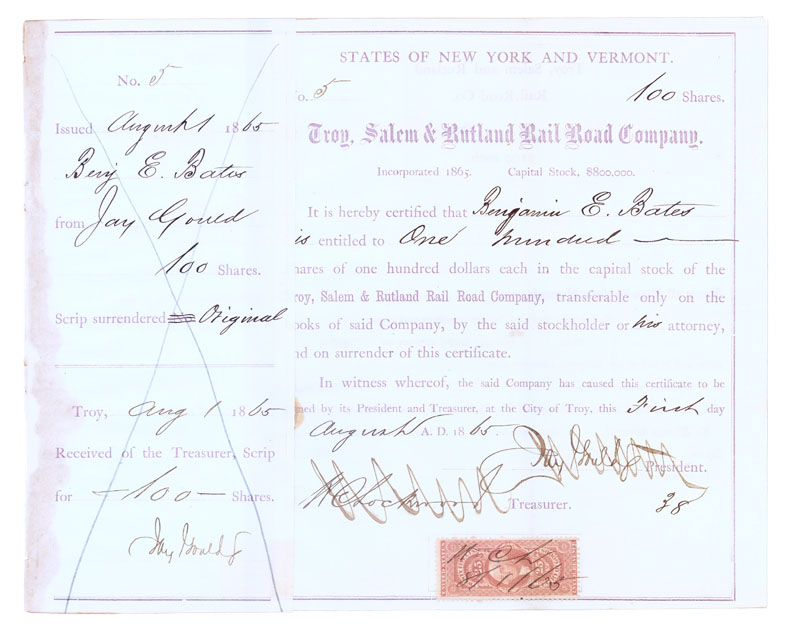 No. 5
Issued August 1 1865
Benj E. Bates
from Jay Gould
100 Shares.
Scrip surrendered Original
Troy, Aug 1 1865
Received of the Treasurer, Scrip
for —100— Shares.
Jay Gould
STATES OF NEW YORK AND VERMONT.
No. 5 100 Shares.
Troy, Salem & Rutland Rail Road Company.
Incorporated 1865. Capital Stock, $800,000.
It is hereby certified that Benjamin E. Bates
is entitled to One hundred
hares of one hundred dollars each in the capital stock of the
roy, Salem & Rutland Rail Road Company, transferable only on the
ooks of said Company, by the said stockholder or his attorney,
nd on surrender of this certificate.
In witness whereof, the said Company has caused this certificate to be
ned by its President and Treasurer, at the City of Troy, this First day
August A. D. 1865.
Jay Gould President.
Lockwood Treasurer. 38
25 25